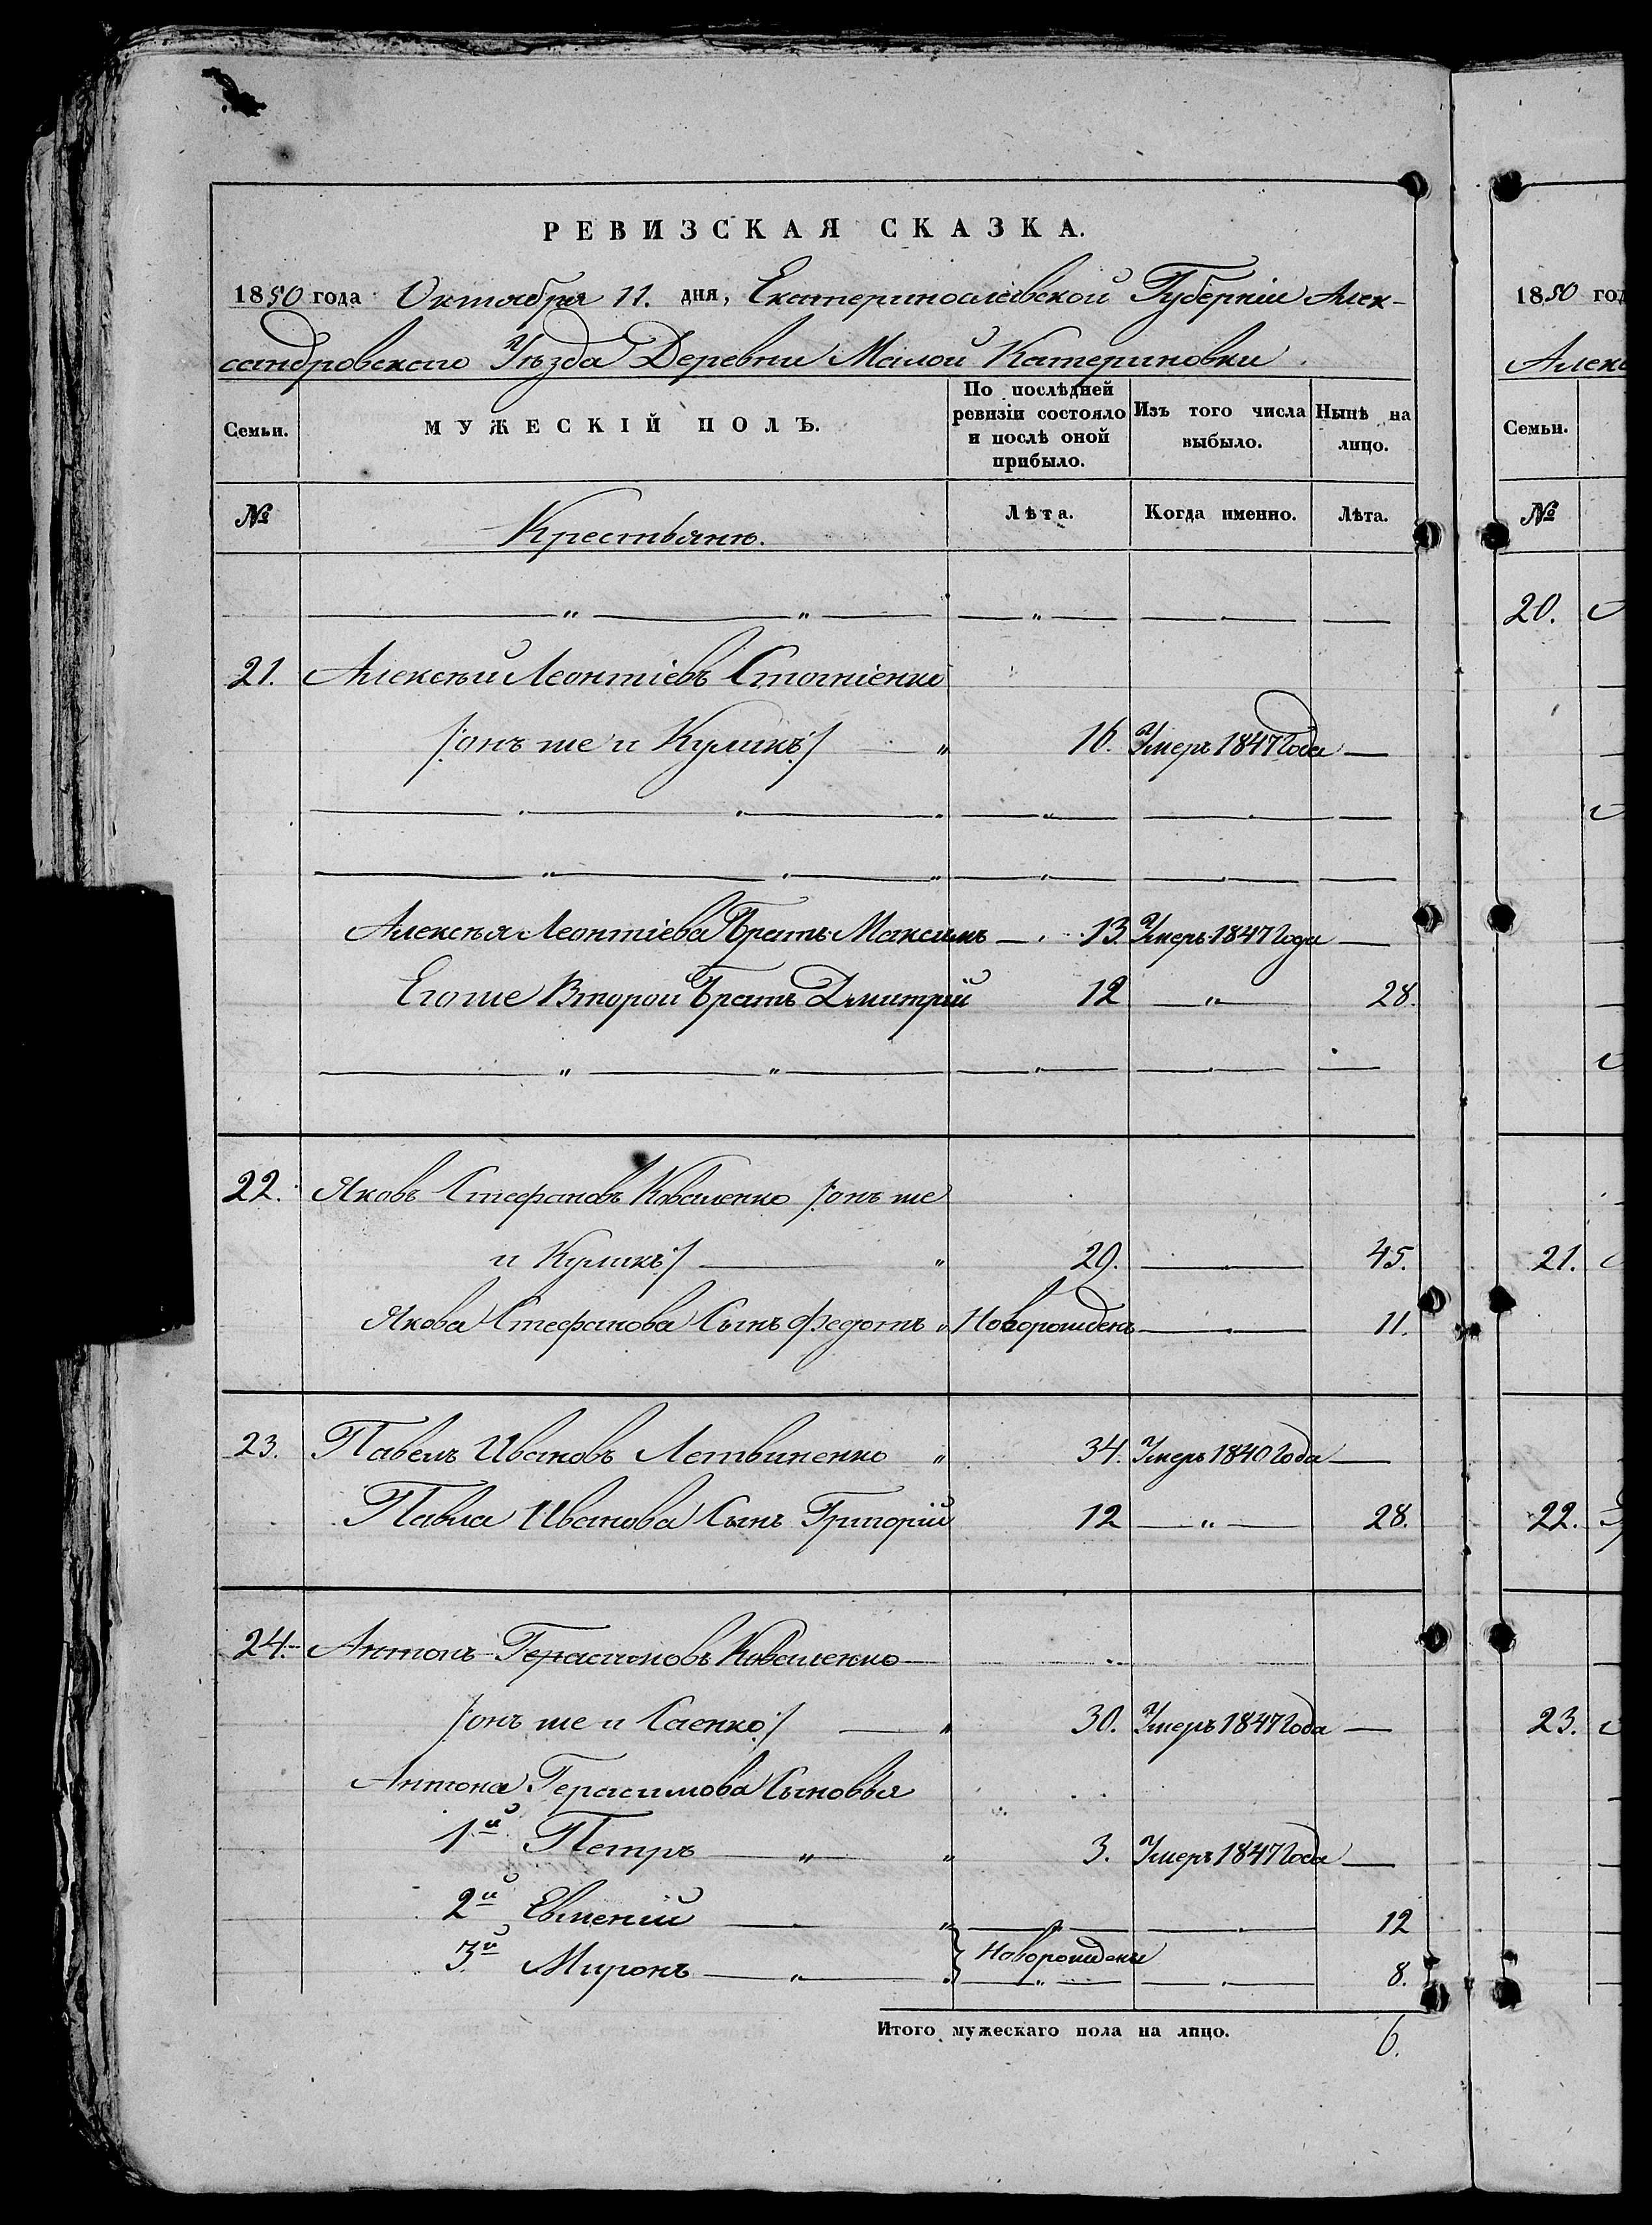 РЕВИЗСКАЯ СКАЗКА.
1850 года Октября 11. дня, Екатеринославской Губерніи Алек-
сандровскаго Уѣзда Деревни Малой Катериновки
Семьи. МУЖЕСКІЙ ПОЛЪ. По послѣдней ревизіи состояло и послѣ оной прибыло. Изъ того числа выбыло. Нынѣ на лицо.
№ Крестьянѣ. Лѣта. Когда именно. Лѣта.
21. Алексѣй Леонтіевъ
/:онъ же и Куликъ:/ 16. Умеръ 1847 Года
Алексѣя Леонтіева Братъ Максимъ 13 Умеръ 1847 Года
Его же Второй Братъ Дмитрій 12 28.
22. Яковъ Стефановъ Коваленко /:онъ же
и Куликъ:/ 29. 45.
Якова Стефанова Сынъ Федотъ Новорожденъ 11.
23. Павелъ Ивановъ Летвиненко 34. Умеръ 1840 Года
Павла Иванова Сынъ Григорій 12 28.
24. Антонъ Герасимовъ Коваленко
/:онъ же и Саенко:/ 30. Умеръ 1847 Года
Антона Герасимова Сыновья
1й Петръ 3. Умеръ 1847 Года
2й Евменій 12
Новорождены
3й Миронъ 8.
Итого мужескаго пола на лицо. 6.
1850 год
Алекс
Семьи.
№
20.
21.
22.
23.